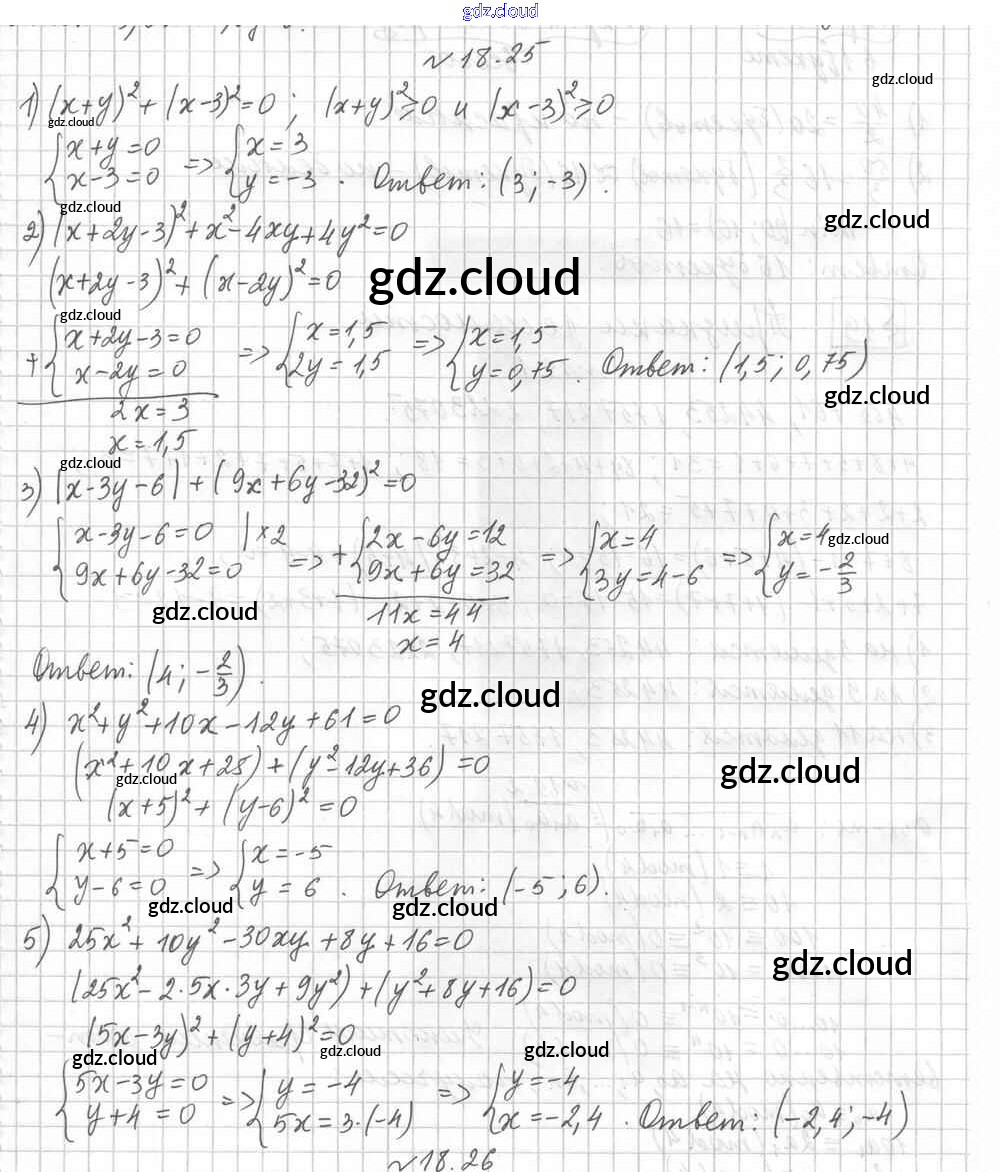 gdz.cloud
№ 18.25
gdz.cloud
1) (x+y)² + (x-3)² = 0 ; (x+y)² ≥ 0 и (x-3)² ≥ 0
gdz.cloud
{x+y=0 x-3=0 => {x=3 y=-3 . Ответ: (3; -3).
gdz.cloud
gdz.cloud
2) (x+2y-3)² + x² - 4xy + 4y² = 0
(x+2y-3)² + (x-2y)² = 0
gdz.cloud
gdz.cloud
+ {x+2y-3=0 x-2y=0 => {x=1,5 2y=1,5 => {x=1,5 y=0,75 . Ответ: (1,5; 0,75)
gdz.cloud
2x=3
x=1,5
gdz.cloud
3) |x-3y-6| + (9x+6y-32)² = 0
{x-3y-6=0 |×2 9x+6y-32=0 => + {2x-6y=12 9x+6y=32 => {x=4 3y=4-6 => {x=4 y=-2/3
gdz.cloud
gdz.cloud
11x=44
x=4
Ответ: (4; -2/3).
gdz.cloud
4) x²+y²+10x-12y+61=0
(x²+10x+25)+(y²-12y+36)=0
gdz.cloud
gdz.cloud
(x+5)²+(y-6)²=0
{x+5=0 y-6=0 => {x=-5 y=6 . Ответ: (-5; 6).
gdz.cloud
gdz.cloud
5) 25x²+10y²-30xy+8y+16=0
gdz.cloud
(25x²-2·5x·3y+9y²)+(y²+8y+16)=0
(5x-3y)²+(y+4)²=0
gdz.cloud
gdz.cloud
gdz.cloud
{5x-3y=0 y+4=0 => {y=-4 5x=3·(-4) => {y=-4 x=-2,4 . Ответ: (-2,4; -4)
№ 18.26